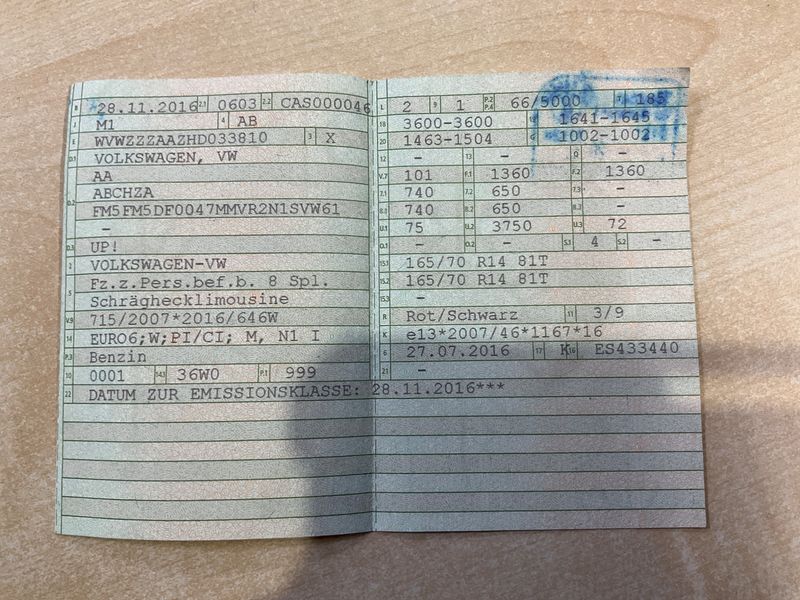 B 28.11.2016 2.1 0603 2.2 CAS000046
J M1 4 AB
E WVWZZZAAZHD033810 3 X
D.1 VOLKSWAGEN, VW
AA
D.2 ABCHZA
FM5FM5DF0047MMVR2N1SVW61
–
D.3 UP!
2 VOLKSWAGEN-VW
5 Fz.z.Pers.bef.b. 8 Spl.
Schräghecklimousine
V.9 715/2007*2016/646W
14 EURO6;W;PI/CI; M, N1 I
P.3 Benzin
10 0001 14.1 36W0 P.1 999
22 DATUM ZUR EMISSIONSKLASSE: 28.11.2016***
L 2 9 1 P.2 P.4 66/5000 T 185
18 3600-3600 19 1641-1645
20 1463-1504 G 1002-1002
12 – 13 – Q –
V.7 101 F.1 1360 F.2 1360
7.1 740 7.2 650 7.3 –
8.1 740 8.2 650 8.3 –
U.1 75 U.2 3750 U.3 72
O.1 – O.2 – S.1 4 S.2 –
15.1 165/70 R14 81T
15.2 165/70 R14 81T
15.3 –
R Rot/Schwarz 11 3/9
K e13*2007/46*1167*16
6 27.07.2016 17 K 16 ES433440
21 –